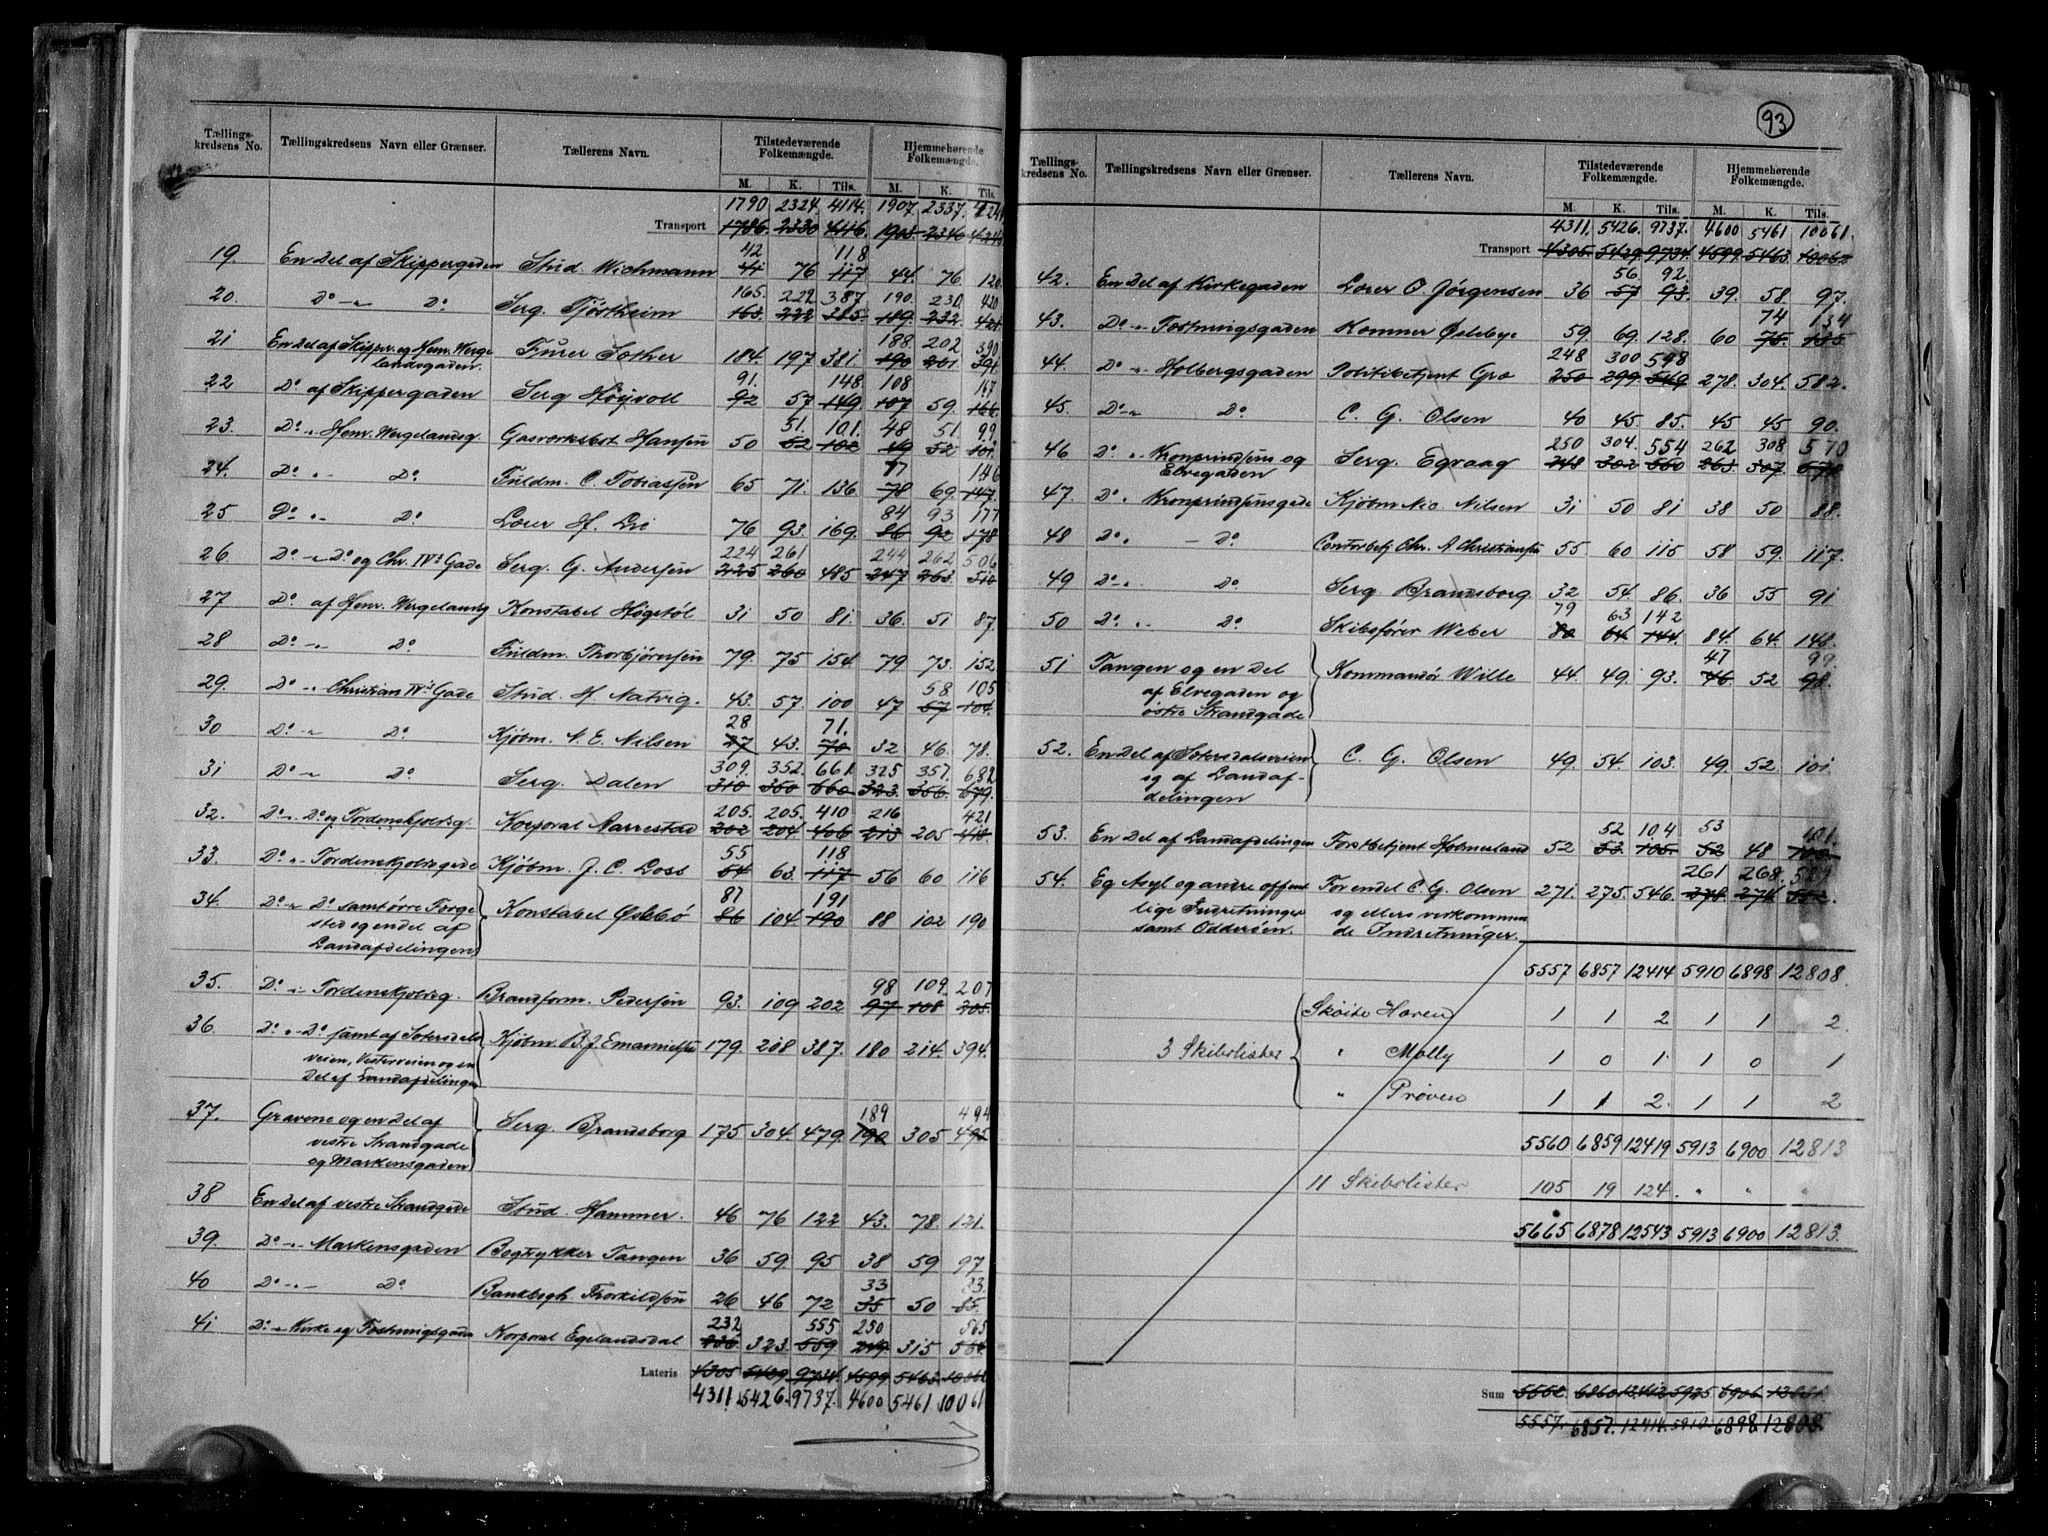 Tællings-kredsens No. Tællingskredsens Navn eller Grænser. Tællerens Navn. Tilstedeværende Folkemængde. Hjemmehørende Folkemængde.
M. K. Tils. M. K. Tils.
1790 2324 4114. 1907. 2337.
Transport 1786. 2330 4116. 1903. 2340
42 118
19. En Del af Skippergaden Stud. Wichmann 41 76 117 44. 76 120
165. 222 387 190. 230 420
20. Do -"- Do. Serg. Tjöstheim 163. 222 385. 189. 232. 421.
188. 202 390
21 En Del af Skipper og Henr. Werge Furer Sother 184. 197 381. 190 201 391
landsgaden.
91. 148. 108 167
22 Do af Skippergaden Serg Höyvoll 92 57 149. 107 59. 166
51. 101. 48 51. 99.
23. Do " Henr. Wergelandsg. Gasværksbest Hansen 50 52 102 49 52 101.
77 146
24. Do " Do. Fuldm. C. Tobiassen 65 71. 136. 78 69. 147.
84 93 177
25 Do " Do. Lærer H. Lie 76 93. 169. 86 92 178
224 261 244 262 506
26. Do -"- Do og Chr. IVs Gade Serg. G. Andersen 225 260 485 247 263. 510
27 Do. af Henr. Wergelandsg Konstabel Høgetöl 31 50 81. 36. 51 87.
28 Do -"- Do. Fuldm. Thorbjörnsen 79. 75 154 79 73. 152
58 105
29. Do " Christian IVs Gade Stud. H. Natvig. 43. 57. 100 47 57 104.
28 71.
30 Do -"- Do. Kjöbm. N. E. Nilsen 27 43. 70 32 46. 78.
309. 352. 661. 325 357. 682
31 Do -"- Do Serg. Dalen 310 350 660 323. 356. 679.
205. 205. 410 216 421
32. Do " Do og Tordenskjoldsg. Korporal Narrestad 202 204 406 213 205 418.
55 118
33. Do " Tordenskjoldsgade Kjöbm. J. C. Loss 54 63. 117 56 60 116
87 191
34. Do " Do samt øvre Torge Konstabel Oslebö 86 104. 190 88 102 190
sted og en del af
Landafdelingen
98 109. 207
35. Do " Tordenskjoldsg. Brandform. Pedersen 93. 109 202 97 108 205.
36. Do " Do samt af Setersdals Kjöbm. B. J. Emanuelsen 179. 208 387. 180 214. 394.
veien, Vesterveien og en
Del af Landafdelingen
189 494
37. Gravene og en Del af Serg. Brandsborg 175 304. 479. 190 305 495
vestre Strandgade
og Markensgaden
38 En Del af vestre Strandgade Stud. Hammer. 46 76 122 43. 78. 121.
39. Do " Markensgaden Bogtrykker Tangen 36 59 95 38 59 97
33 83.
40 Do " Do. Bankbogh. Thorkildsen 26 46 72 35 50 85.
232 555 250 565
41 Do " Kirke og Fæstningsgade Korporal Egelandsdal 236 323. 559 249. 315 564
Lateris 4305 5429 9734. 4599 5463
4311. 5426. 9737. 4600 5461 10061
93
Tællings-kredsens No. Tællingskredsens Navn eller Grænser. Tællerens Navn. Tilstedeværende Folkemængde. Hjemmehørende Folkemængde.
M. K. Tils. M. K. Tils.
4311. 5426. 9737. 4600 5461 10061.
Transport 4305. 5429. 9734. 4599. 5463. 10062
56 92.
42. En Del af Kirkegaden Lærer O. Jörgensen 36 57 93. 39. 58. 97.
74 134
43. Do " Fæstningsgaden Kemner Oslebye 59. 69. 128. 60 75. 135.
248 300 598
44. Do " Holbergsgaden Politibetjent Gro 250 299. 549 278. 304. 582.
45. Do " Do. C. G. Olsen 40 45. 85. 45 45 90.
250 304. 554 262 308 570
46 Do. " Kronprindsens og Serg. Egraag 248 302 550 263. 307. 570
Elvegaden
47 Do. " Kronprindsensgade Kjöbm Nic. Nilsen 31 50 81 38 50 88.
48 Do. " Do. Contorbetj. Chr. A Christiansen 55 60 115 58 59. 117.
49 Do " Do. Serg Brandsborg 32 54. 86. 36 55 91
79 63 142
50 Do. " Do. Skibsförer Weber 80 64. 144. 84. 64. 148.
47 99.
51 Tangen og en Del Kommandör Wille 44. 49. 93. 46 52 98.
af Elvegaden og
östre Strandgade
52. En Del af Setersdalsveien C. G. Olsen 49. 54. 103. 49. 52. 101.
og af Landaf-
delingen
52 104 53 101.
53. En Del af Landafdelingen Forstbetjent Holmesland 52 53. 105. 52 48 100.
261 268. 529
54. Eg Asyl og andre offent For en del C. G. Olsen 271. 275. 546. 278. 274. 552.
lige Indretninger og ellers vedkommen
samt Odderöen. de Indretninger.
5557 6857 12414 5910 6898 12808
3 Skibslister
Sköite Haven 1 1 2 1 1 2.
" Molly 1 0 1. 1 0 1
" Pröven 1 1 2. 1 1 2
5560 6859 12419 5913 6900 12813
11 Skibslister 105 19 124. " " "
5665 6878 12543 5913 6900 12813.
Sum 5552. 6860 12412 5925 6906. 12831.
5557. 6857. 12414. 5910. 6898. 12808.